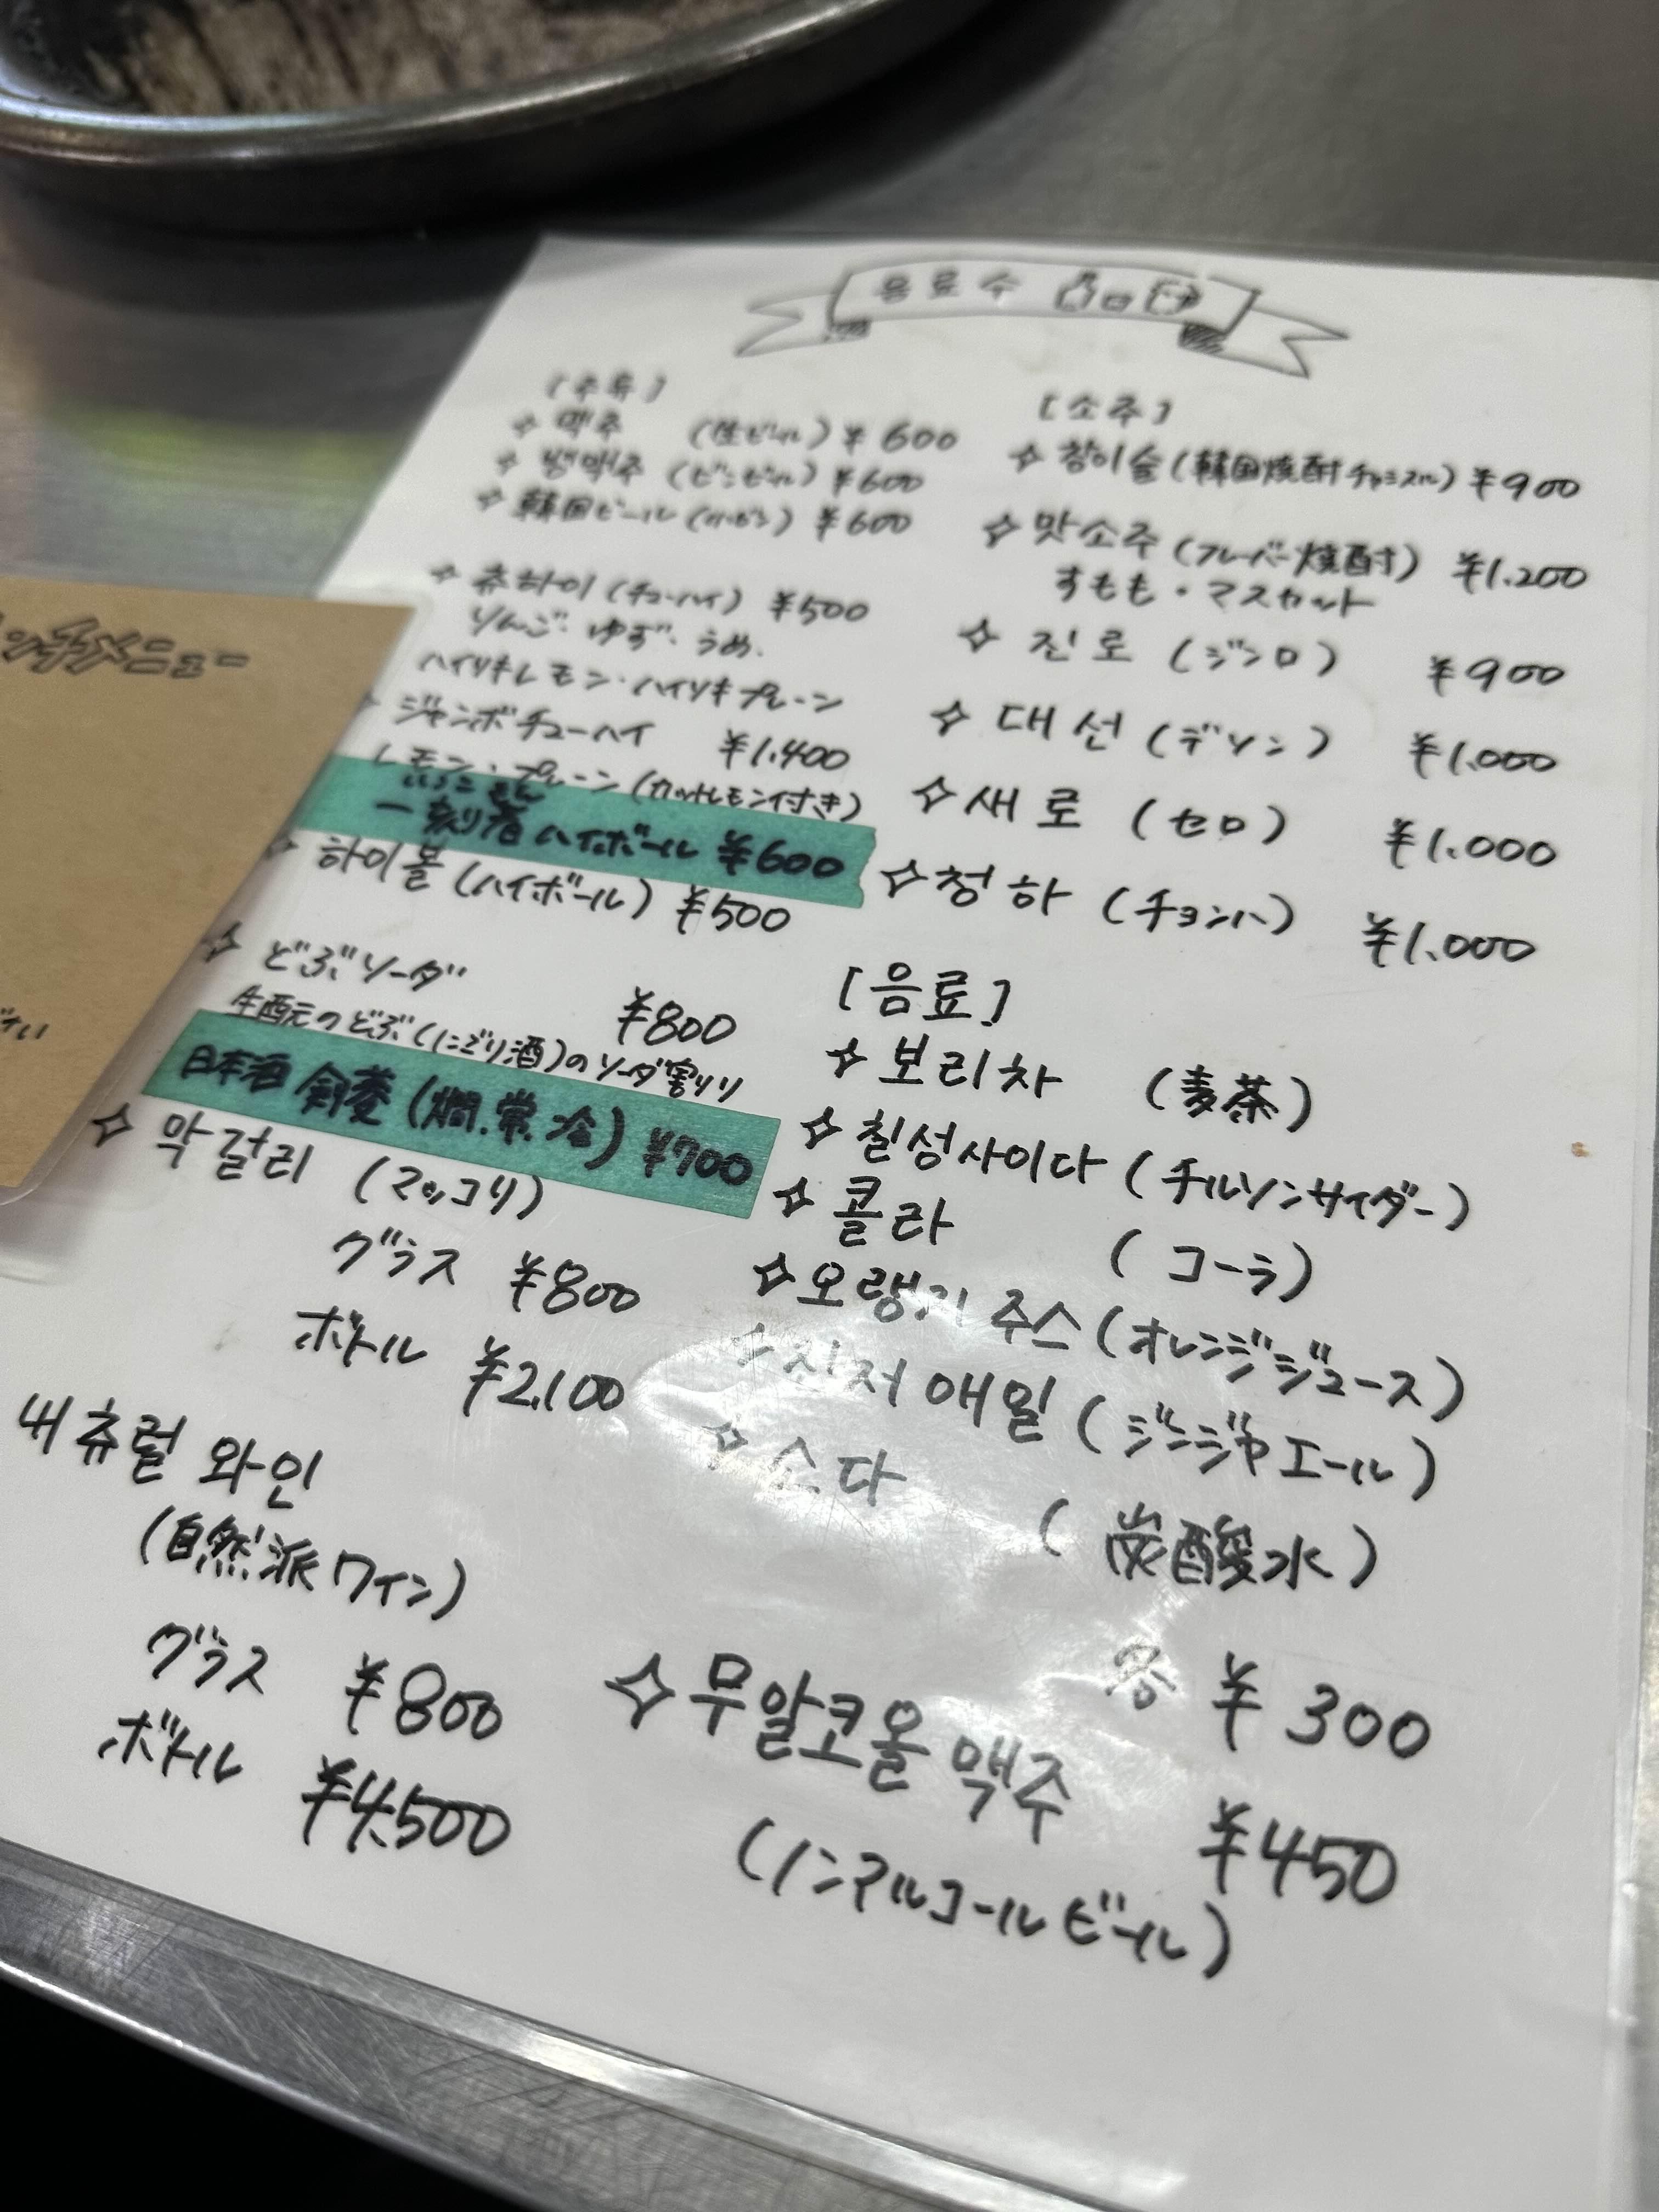 음료수
[주류]
맥주 (生ビール) ¥600
병맥주 (ビンビール) ¥600
韓国ビール (小ビン) ¥600
츄하이 (チューハイ) ¥500
りんご・ゆず・うめ・
ハイリキレモン・ハイリキプレーン
ジャンボチューハイ ¥1,400
レモン・プレーン (カットレモン付き)
一刻者 ハイボール ¥600
하이볼 (ハイボール) ¥500
どぶソーダ ¥800
生酛のどぶ (にごり酒) のソーダ割り
日本酒 剣菱 (燗.常.冷) ¥700
막걸리 (マッコリ)
グラス ¥800
ボトル ¥2,100
내츄럴 와인
(自然派ワイン)
グラス ¥800
ボトル ¥4,500
[소주]
참이슬 (韓国焼酎チャミスル) ¥900
맛소주 (フレーバー焼酎) ¥1,200
すもも・マスカット
진로 (ジンロ) ¥900
대선 (デソン) ¥1,000
새로 (セロ) ¥1,000
청하 (チョンハ) ¥1,000
[음료]
보리차 (麦茶)
칠성사이다 (チルソンサイダー)
콜라 (コーラ)
오랭지 주스 (オレンジジュース)
진저 애일 (ジンジャエール)
소다 (炭酸水)
各 ¥300
무알코올 맥주 ¥450
(ノンアルコールビール)
ッチメニュー